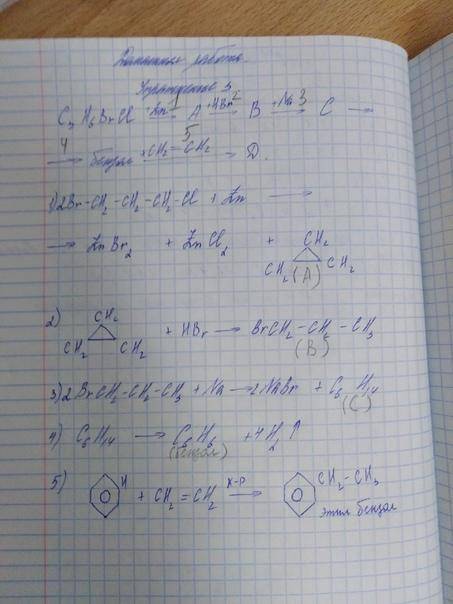 Домашняя работа.
Упражнение 3
C₃H₆BrCl +Zn 1→ A +HBr 2→ B +Na 3→ C →
4→ бензол +CH₂=CH₂ 5→ D.
1) 2Br-CH₂-CH₂-CH₂-Cl + Zn →
→ ZnBr₂ + ZnCl₂ + CH₂ CH₂ CH₂ (A)
2) CH₂ CH₂ CH₂ + HBr → BrCH₂-CH₂-CH₃ (B)
3) 2BrCH₂-CH₂-CH₃ + Na → 2NaBr + C₆H₁₄ (C)
4) C₆H₁₄ → C₆H₆ (бензол) + 4H₂↑
5) H + CH₂=CH₂ к-р→ CH₂-CH₃
этил бензол